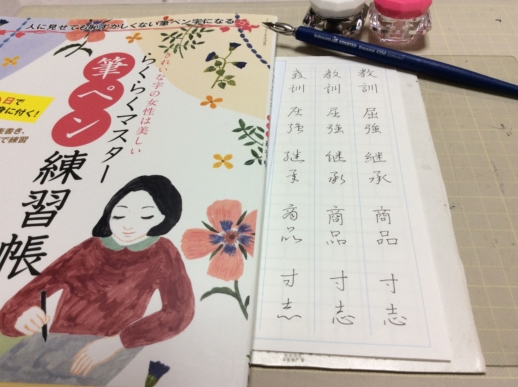 人に見せても恥ずかしくない筆ペン字になる
れいな字の女性は美しい
らくらくマスター
筆ペン
練習帳
日で
に付く!
書き、
で練習
教訓 屈強 継承 商品 寸志
教訓 屈強 継承 商品 寸志
教訓 屈強 継承 商品 寸志